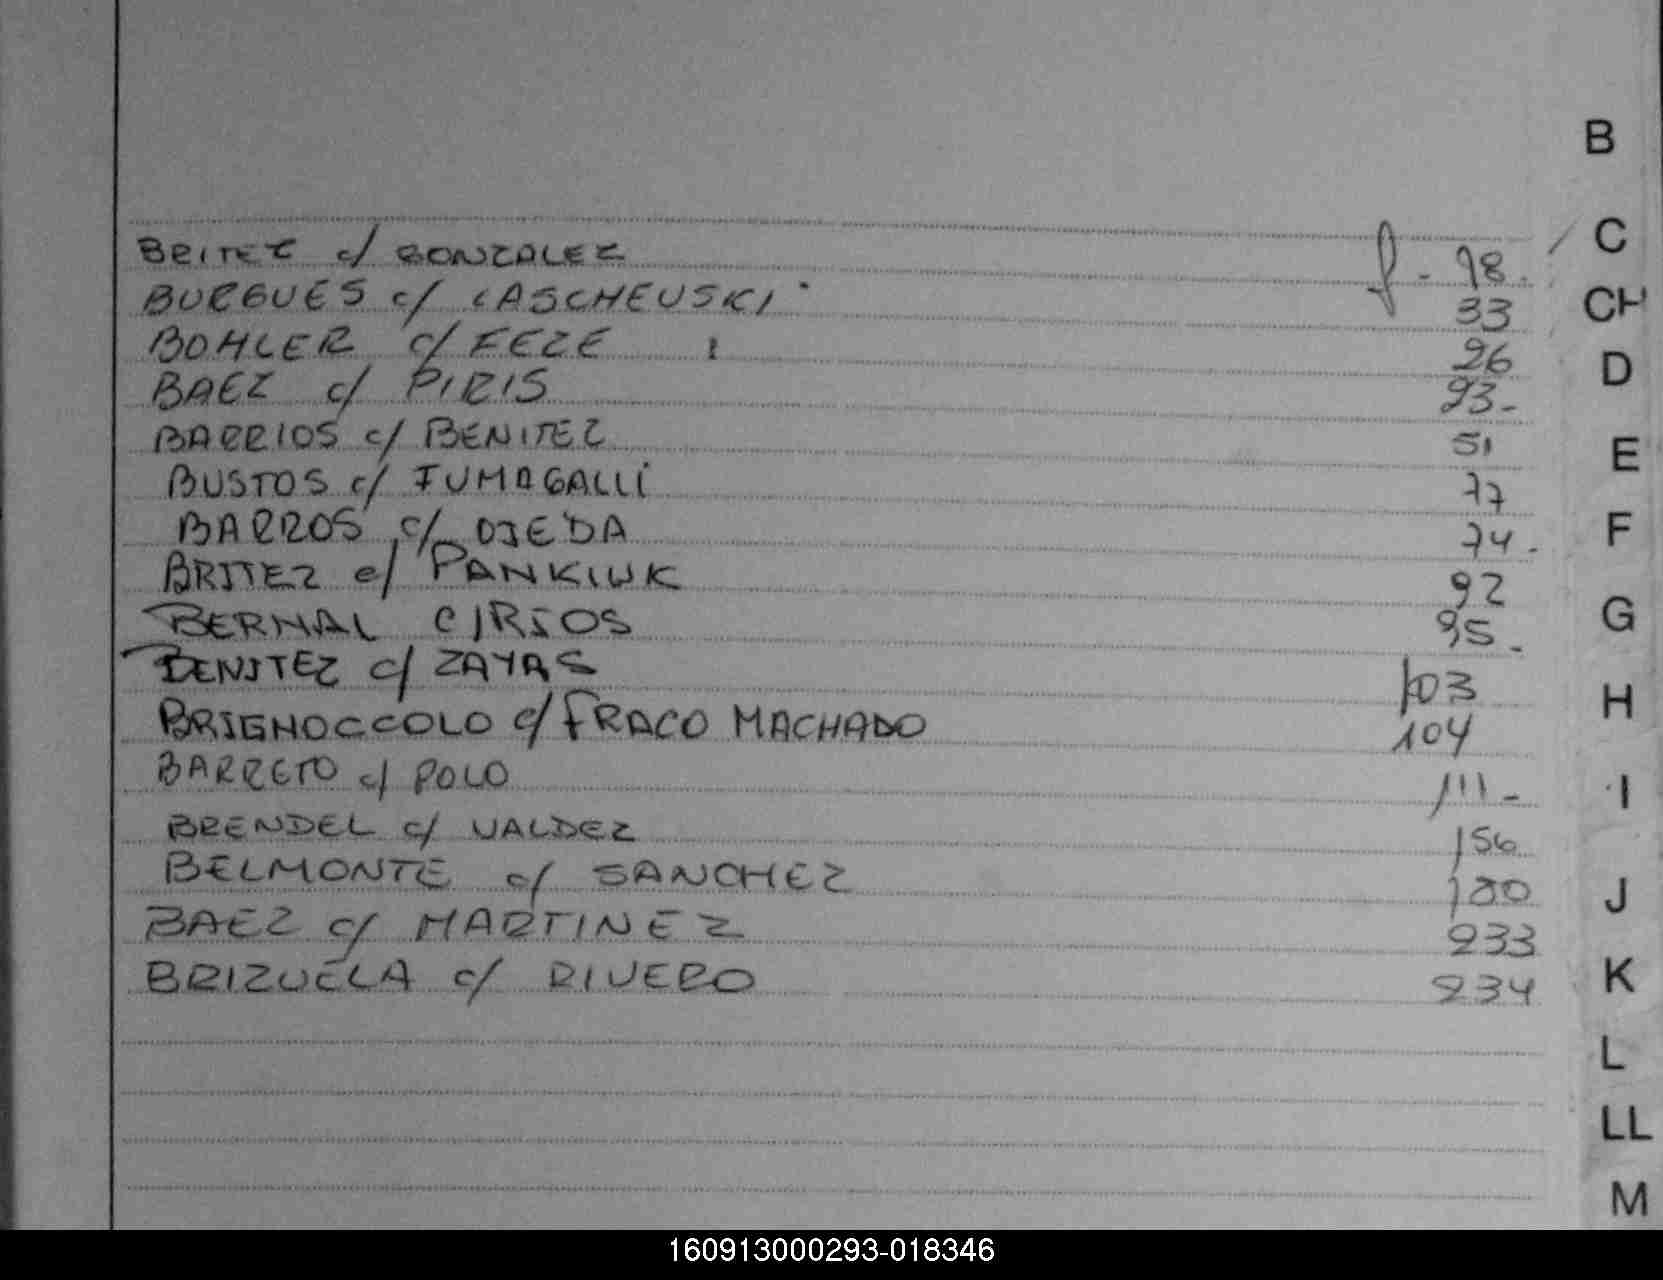 B
C
BRITEZ c/ GONZALEZ f - 98.
BURGUES c/ LASCHEUSKI 33
CH
BOHLER c/ FEZE 26
D
BAEZ c/ PIRIS 93-
BARRIOS c/ BENITEZ 51
E
BUSTOS c/ FUMAGALLI 77
BARROS c/ OJEDA 74.
F
BRITEZ c/ PANKIUK 92
BERNAL C/RIOS 95.
G
BENITEZ c/ ZAYAS 103
H
BRIGNOCCOLO c/ FRACO MACHADO 104
BARRETO c/ POLO 111-
I
BRENDEL c/ VALDEZ 156
BELMONTE c/ SANCHEZ
J
BAEZ c/ MARTINEZ 233
BRIZUELA c/ RIVERO 234
K
L
LL
M
160913000293-018346